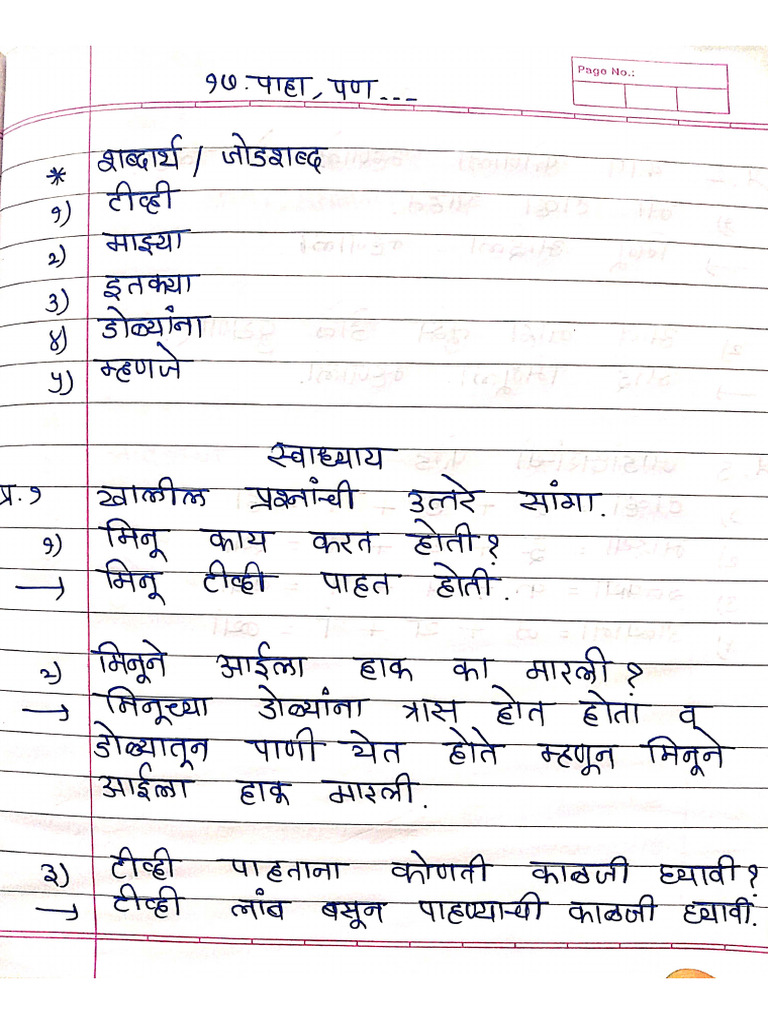 १७. पाहा, पण ...
Page No.:
* शब्दार्थ / जोडशब्द
१) टीव्ही
२) माझ्या
३) इतक्या
४) डोळ्यांना
५) म्हणजे
स्वाध्याय
प्र. १ खालील प्रश्नांची उत्तरे सांगा.
१) मिनू काय करत होती?
→ मिनू टीव्ही पाहत होती.
२) मिनूने आईला हाक का मारली?
→ मिनूच्या डोळ्यांना त्रास होत होता व
डोळ्यातून पाणी येत होते म्हणून मिनूने
आईला हाक मारली.
३) टीव्ही पाहताना कोणती काळजी घ्यावी?
→ टीव्ही लांब बसून पाहण्याची काळजी घ्यावी.